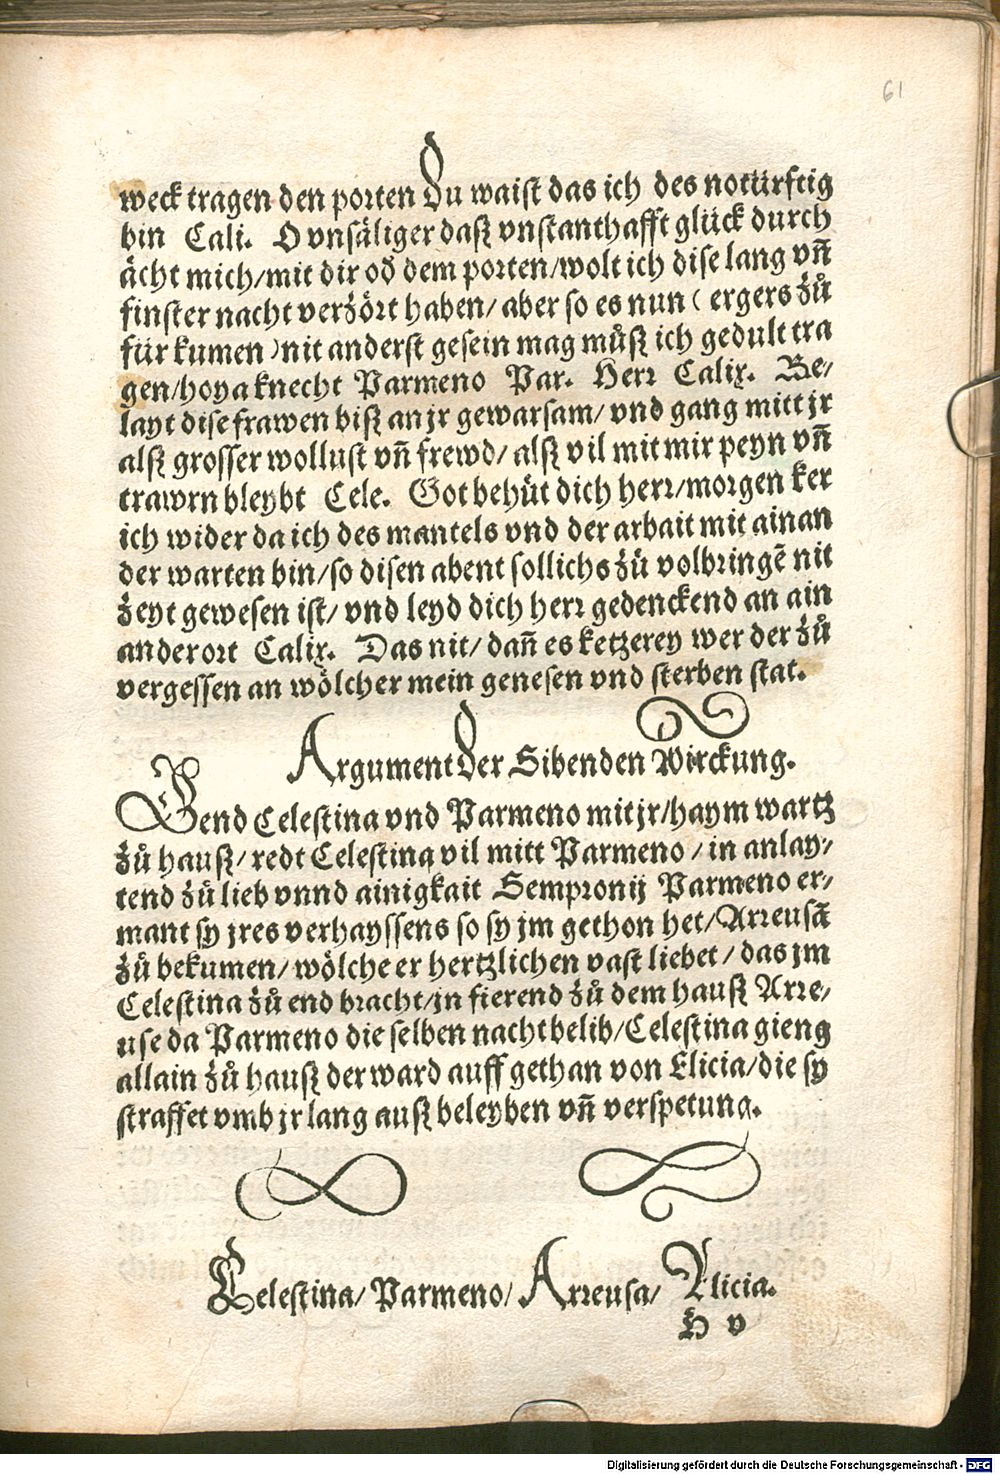 61
weck tragen den porten du waist das ich des notürftig
bin Cali. O vnsäliger dasz vnstanthafft glück durch
ächt mich/mit dir od̄ dem porten/wolt ich dise lang vn̄
finster nacht verzört haben/ aber so es nun ( ergers zů
für kumen ) nit anderst gesein mag můsz ich gedult tra
gen/hoya knecht Parmeno Par. Herr Calix. Be/
layt dise frawen bisz an jr gewarsam/ vnd gang mitt jr
alsz grosser wollust vn̄ frewd/ alsz vil mit mir peyn vn̄
trawrn bleybt Cele. Got behüt dich herr/morgen ker
ich wider da ich des mantels vnd der arbait mit ainan
der warten bin/so disen abent sollichs zů volbringē nit
zeyt gewesen ist/ vnd leyd dich herr gedenckend an ain
ander ort Calix. Das nit/ dan̄ es ketzerey wer der zů
vergessen an wölcher mein genesen vnd sterben stat.
Argument der Sibenden Wirckung.
Gend Celestina vnd Parmeno mit jr/haym wartz
zů hausz/ redt Celestina vil mitt Parmeno / in anlay/
tend zů lieb vnnd ainigkait Sempronij Parmeno er/
mant sy jres verhayssens so sy jm gethon het/Arreusā
zů bekumen/ wölche er hertzlichen vast liebet/ das jm
Celestina zů end bracht/jn fierend zů dem hausz Arre/
use da Parmeno die selben nacht belib/Celestina gieng
allain zů hausz der ward auff gethan von Elicia/die sy
straffet vmb jr lang ausz beleyben vn̄ verspetung.
Celestina/ Parmeno/ Arreusa/ Alicia.
H v
Digitalisierung gefördert durch die Deutsche Forschungsgemeinschaft - DFG